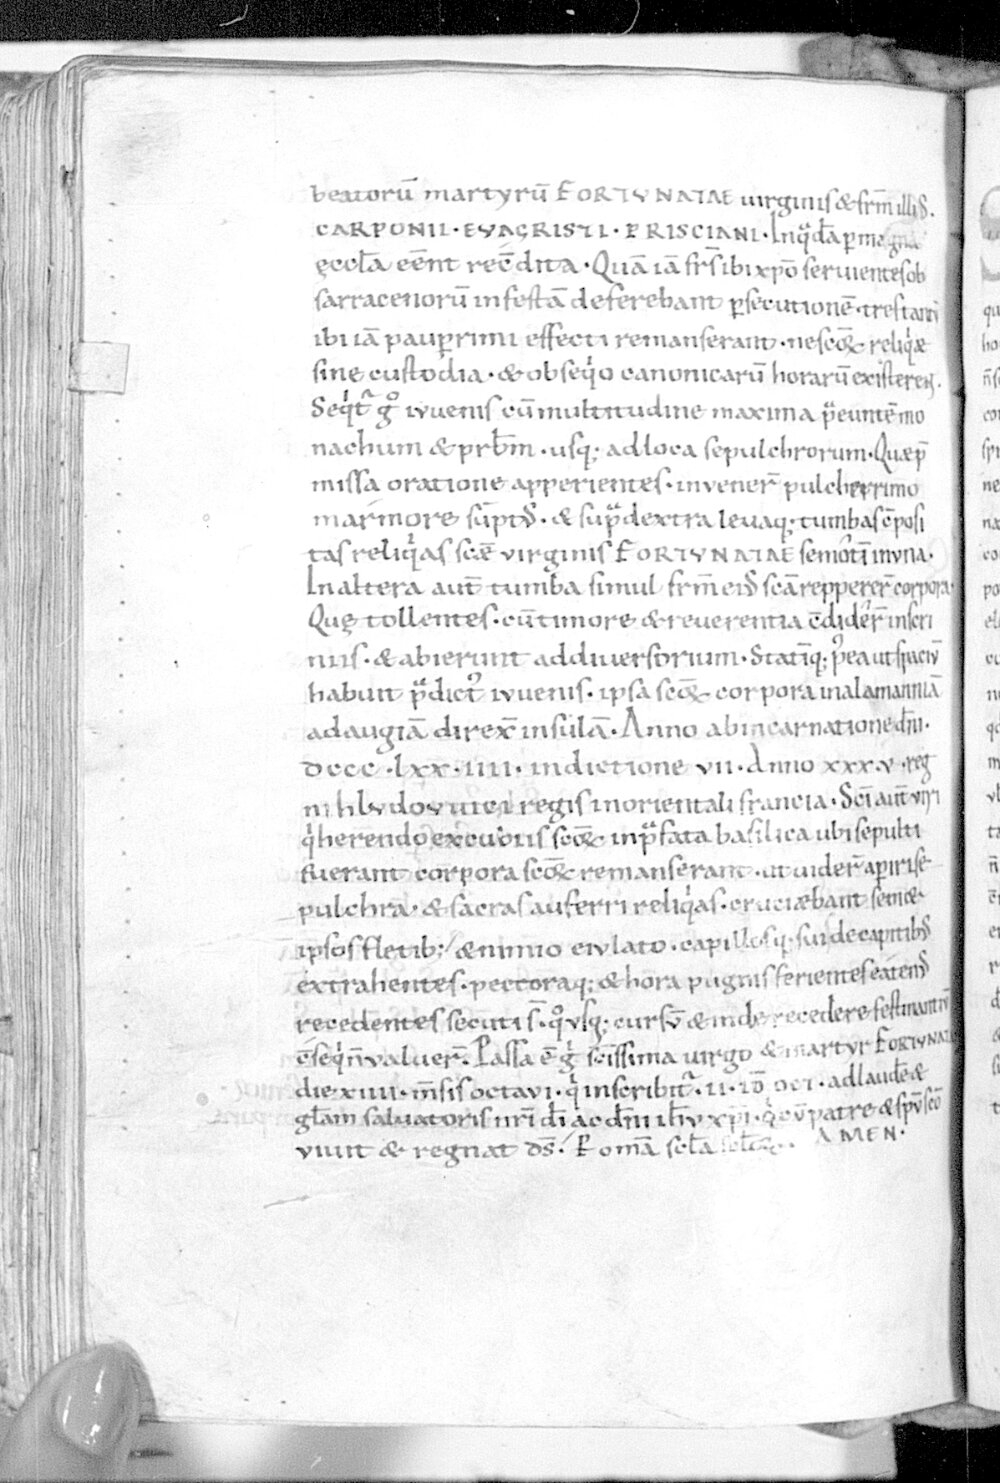 beatorū martyrū FORTVNATAE uirginis & frm̄ illiꝰ.
CARPONII · EVAGRISTI · PRISCIANI · Inq̇dā p magna
ęccl̄a eēnt rec̄dita · Quā iā frs̄ ibi xpō seruientes ob
sarracenorū infestā deferebant p̱secutionē · tres tant̄
ibi iā paup̱rimi effecti remanserant · ne scōꝝ reliq̇æ
sine custodia · & obseq̇o canonicarū horarū existerent.
Seq̇t̄ gͦ iuuenis cū multitudine maxima p̄eunte mo
nachum & prb̄m · usq; ad loca sepulchrorum · Quæ p̄
missa oratione apperientes · invener̄ pulcherrimo
marmore sūptꝰ · & sup̱ dextra levaq; tumbas c̄posi
tas reliq̇as scāe virginis FORTVNATAE semotī inuna ·
In altera aut̄ tumba simul frm̄ eiꝰ scā reppererꝛ̄ corpora ·
Quę tollentes · cū timore & reuerentia c̄dider̄ in scri
niis · & abierunt ad diversorium · Statīq; p̉ea ut spaciū
habuit p̄dictꝰ iuvenis · ipsa scōꝝ corpora in alamanniā
ad augiā direx̄ insulā · Anno ab incarnatione dn̄i ·
DCCC · LXX · IIII · indictione VII · Anno XXX · V · reg
ni hludouuici regis in orientali francia · Scī aut̄ viri
q̇ herendo excubiis scōꝝ inp̄fata basilica ubi sepulti
fuerant corpora scōꝝ remanserant · ut uider̄ aperiri se
pulchra · & sacras auferri reliq̇as · cruciæbant semæ
ipsos fletib; · & nimio eiulato · capillosq; sui de capitibꝰ
extrahentes · pectoraq; & hora pugnis ferientes eātenꝰ
recedentes secuti s̄ · qͦusq; cursū & inde recedere festinantiū
c̄seq̇ n̄ valuer̄. Passa ē g̉ scīssima uirgo & martyr FORTVNATA
die XIIII · m̄sis octavi · q̇ inscribit̄ · II · ID OCT · ad laudē &
glam̄ saluatoris nrī dī ac dn̄i ih̄u xp̄i · q̇ cū patre & spū scō
vivit & regnat dS̄ · P omā scl̄a scl̄oꝝ · AMEN ·